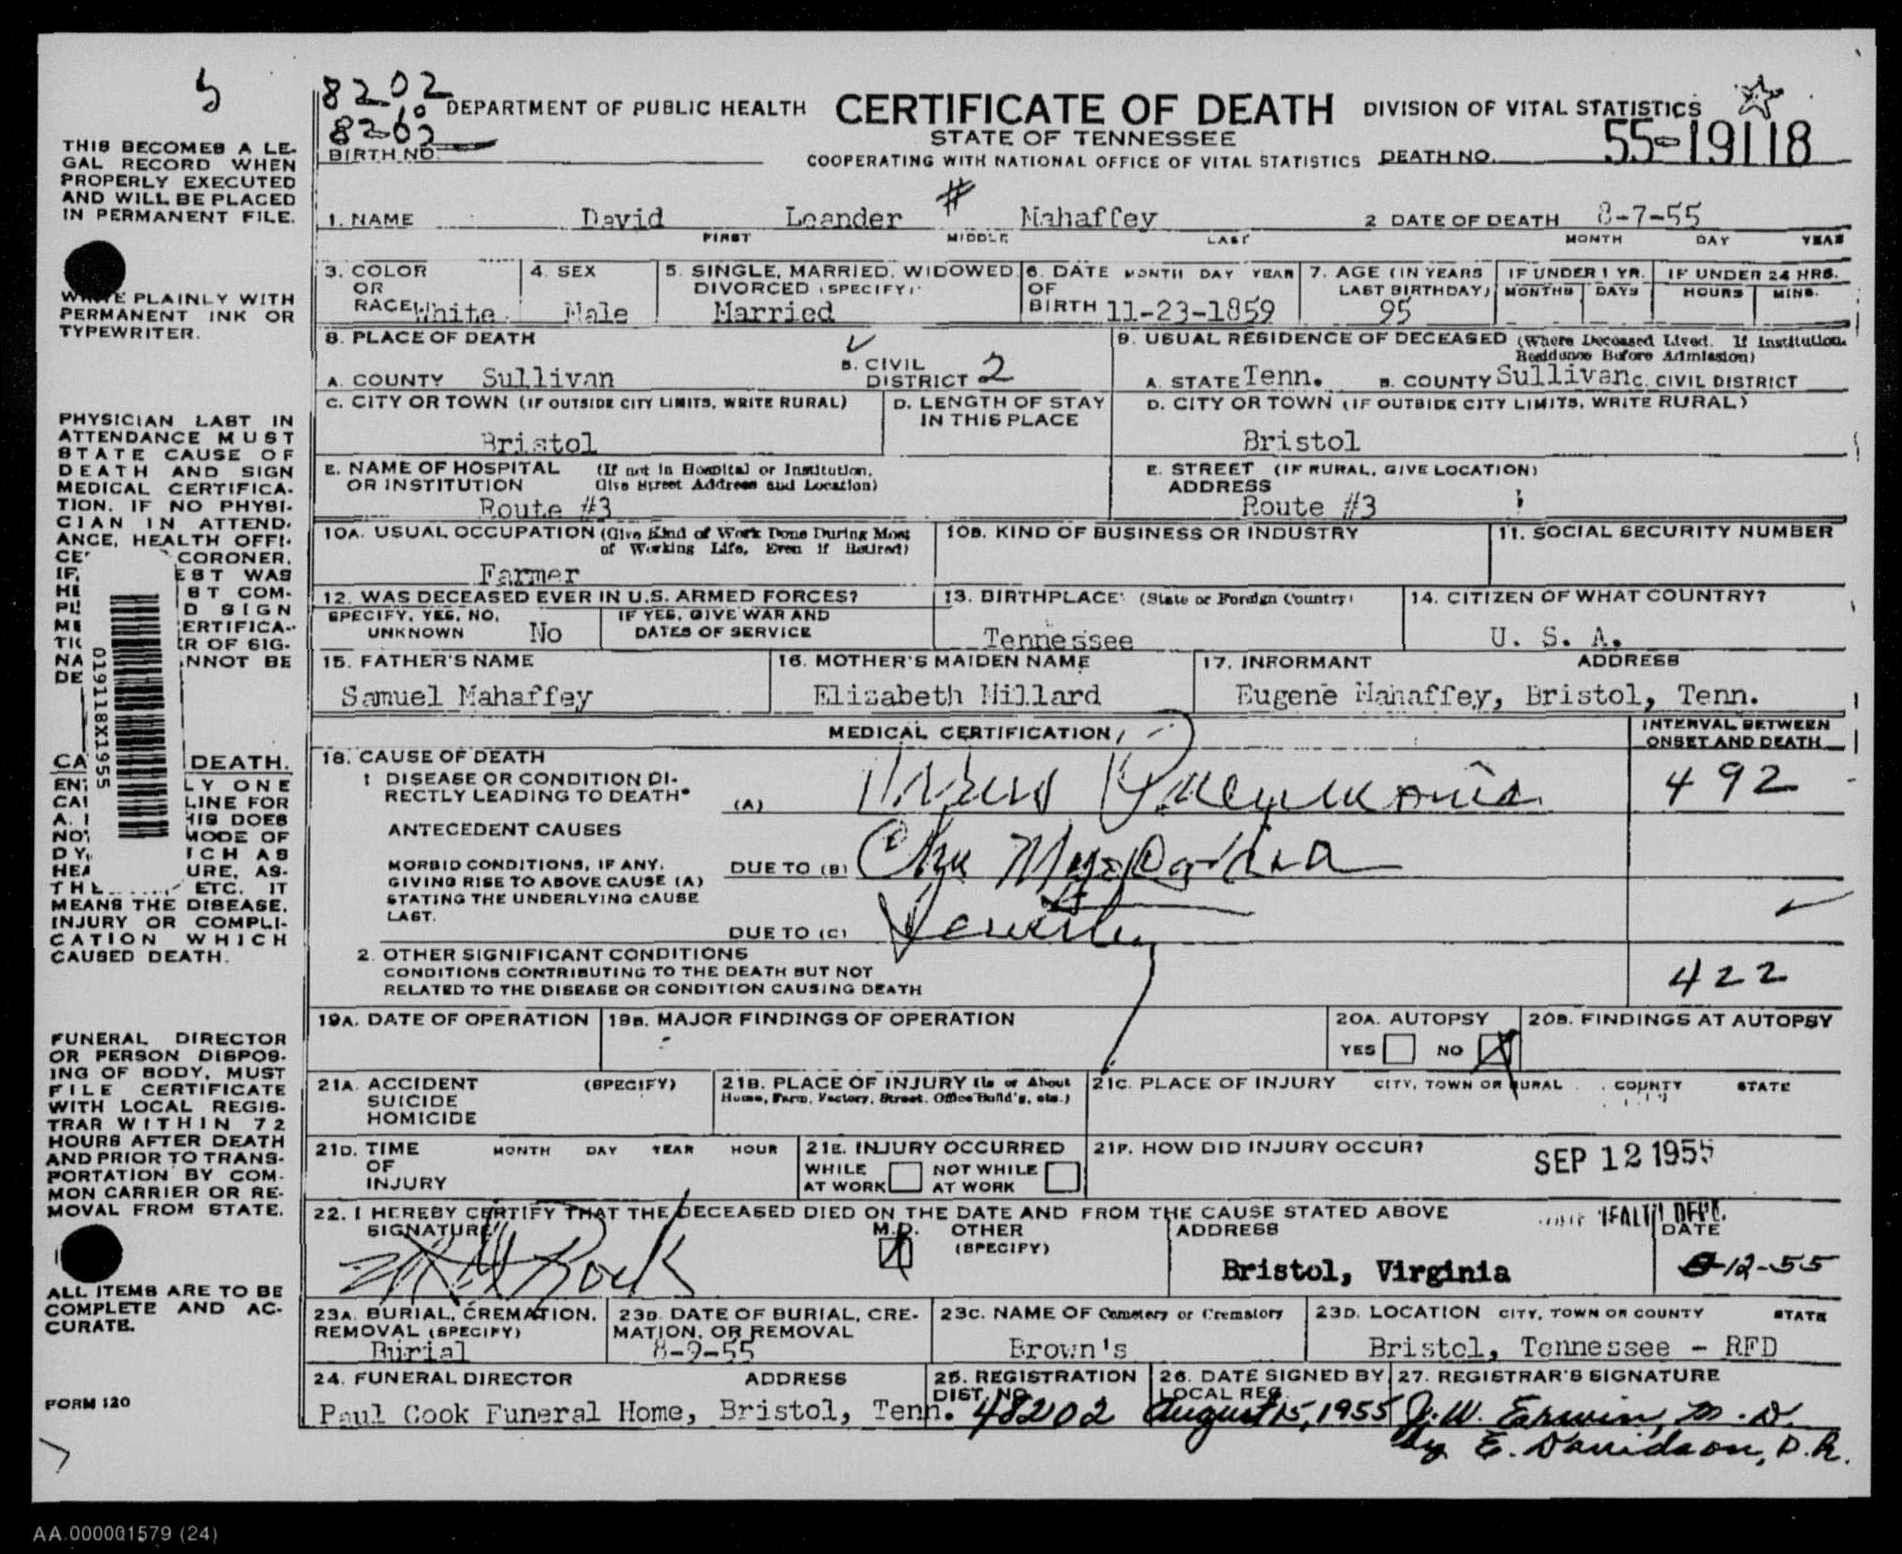 5
8202
10
8202
DEPARTMENT OF PUBLIC HEALTH CERTIFICATE OF DEATH DIVISION OF VITAL STATISTICS
STATE OF TENNESSEE
BIRTH NO. COOPERATING WITH NATIONAL OFFICE OF VITAL STATISTICS DEATH NO. 55-19118
THIS BECOMES A LE-
GAL RECORD WHEN
PROPERLY EXECUTED
AND WILL BE PLACED
IN PERMANENT FILE.
#
1. NAME David Leander Mahaffey 2 DATE OF DEATH 8-7-55
FIRST MIDDLE LAST MONTH DAY YEAR
WRITE PLAINLY WITH
PERMANENT INK OR
TYPEWRITER.
3. COLOR OR RACE White
4. SEX Male
5. SINGLE, MARRIED, WIDOWED, DIVORCED (SPECIFY) Married
6. DATE OF BIRTH MONTH DAY YEAR 11-23-1859
7. AGE (IN YEARS LAST BIRTHDAY) 95
IF UNDER 1 YR. MONTHS DAYS
IF UNDER 24 HRS. HOURS MINS.
8. PLACE OF DEATH
A. COUNTY Sullivan B. CIVIL DISTRICT 2
9. USUAL RESIDENCE OF DECEASED (Where Deceased Lived. If Institution. Residence Before Admission)
A. STATE Tenn. B. COUNTY Sullivan C. CIVIL DISTRICT
C. CITY OR TOWN (IF OUTSIDE CITY LIMITS, WRITE RURAL)
Bristol
D. LENGTH OF STAY IN THIS PLACE
D. CITY OR TOWN (IF OUTSIDE CITY LIMITS, WRITE RURAL)
Bristol
E. NAME OF HOSPITAL OR INSTITUTION (If not in Hospital or Institution, Give Street Address and Location)
Route #3
E. STREET ADDRESS (IF RURAL, GIVE LOCATION)
Route #3
PHYSICIAN LAST IN
ATTENDANCE MUST
STATE CAUSE OF
DEATH AND SIGN
MEDICAL CERTIFICA-
TION. IF NO PHYSI-
CIAN IN ATTEND-
ANCE, HEALTH OFFI-
CE CORONER.
IF EST WAS
HE ST COM-
PL D SIGN
ME ERTIFICA-
TIC R OF SIG-
NA NNOT BE
DE
019118X1955
10A. USUAL OCCUPATION (Give Kind of Work Done During Most of Working Life, Even if Retired)
Farmer
10B. KIND OF BUSINESS OR INDUSTRY
11. SOCIAL SECURITY NUMBER
12. WAS DECEASED EVER IN U.S. ARMED FORCES?
SPECIFY, YES, NO, UNKNOWN No
IF YES, GIVE WAR AND DATES OF SERVICE
13. BIRTHPLACE (State or Foreign Country)
Tennessee
14. CITIZEN OF WHAT COUNTRY?
U. S. A.
15. FATHER'S NAME
Samuel Mahaffey
16. MOTHER'S MAIDEN NAME
Elizabeth Millard
17. INFORMANT ADDRESS
Eugene Mahaffey, Bristol, Tenn.
MEDICAL CERTIFICATION
INTERVAL BETWEEN ONSET AND DEATH
18. CAUSE OF DEATH
1 DISEASE OR CONDITION DI-
RECTLY LEADING TO DEATH* (A) Pneumonia 492
ANTECEDENT CAUSES
MORBID CONDITIONS, IF ANY,
GIVING RISE TO ABOVE CAUSE (A)
STATING THE UNDERLYING CAUSE
LAST.
DUE TO (B)
DUE TO (C)
2. OTHER SIGNIFICANT CONDITIONS
CONDITIONS CONTRIBUTING TO THE DEATH BUT NOT
RELATED TO THE DISEASE OR CONDITION CAUSING DEATH
422
CA DEATH.
EN LY ONE
CAU LINE FOR
A. HIS DOES
NO MODE OF
DY ICH AS
HEA URE, AS-
THE ETC. IT
MEANS THE DISEASE,
INJURY OR COMPLI-
CATION WHICH
CAUSED DEATH.
19A. DATE OF OPERATION
19B. MAJOR FINDINGS OF OPERATION
20A. AUTOPSY
YES NO X
20B. FINDINGS AT AUTOPSY
FUNERAL DIRECTOR
OR PERSON DISPOS-
ING OF BODY, MUST
FILE CERTIFICATE
WITH LOCAL REGIS-
TRAR WITHIN 72
HOURS AFTER DEATH
AND PRIOR TO TRANS-
PORTATION BY COM-
MON CARRIER OR RE-
MOVAL FROM STATE.
21A. ACCIDENT (SPECIFY)
SUICIDE
HOMICIDE
21B. PLACE OF INJURY (In or About Home, Farm, Factory, Street, Office Build'g, etc.)
21C. PLACE OF INJURY CITY, TOWN OR RURAL COUNTY STATE
21D. TIME OF INJURY MONTH DAY YEAR HOUR
21E. INJURY OCCURRED
WHILE AT WORK NOT WHILE AT WORK
21F. HOW DID INJURY OCCUR?
SEP 12 1955
HEALTH DEPT.
22. I HEREBY CERTIFY THAT THE DECEASED DIED ON THE DATE AND FROM THE CAUSE STATED ABOVE
SIGNATURE M.D. X OTHER (SPECIFY) ADDRESS DATE
Bristol, Virginia 8-12-55
ALL ITEMS ARE TO BE
COMPLETE AND AC-
CURATE.
23A. BURIAL, CREMATION, REMOVAL (SPECIFY)
Burial
23B. DATE OF BURIAL, CRE-
MATION, OR REMOVAL
8-9-55
23C. NAME OF Cemetery or Crematory
Brown's
23D. LOCATION CITY, TOWN OR COUNTY STATE
Bristol, Tennessee - RFD
24. FUNERAL DIRECTOR ADDRESS
Paul Cook Funeral Home, Bristol, Tenn.
25. REGISTRATION DIST. NO.
48202
26. DATE SIGNED BY LOCAL REG.
August 15, 1955
27. REGISTRAR'S SIGNATURE
J. W. Erwin, M. D.
by E. Davidson, D. R.
FORM 120
AA.000001579 (24)